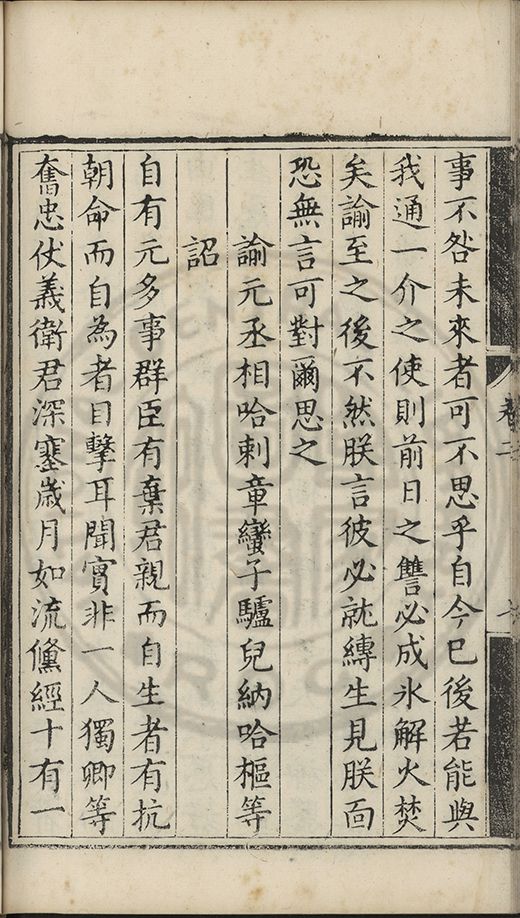 事不咎未來者可不思乎自今已後若能與
我通一介之使則前日之讐必成氷解火焚
矣諭至之後不然朕言彼必就縛生見朕面
恐無言可對爾思之
諭元丞相哈剌章蠻子驢兒納哈樞等
詔
自有元多事群臣有棄君親而自生者有抗
朝命而自為者目擊耳聞實非一人獨卿等
奮忠仗義衛君深塞歲月如流儵經十有一
卷二